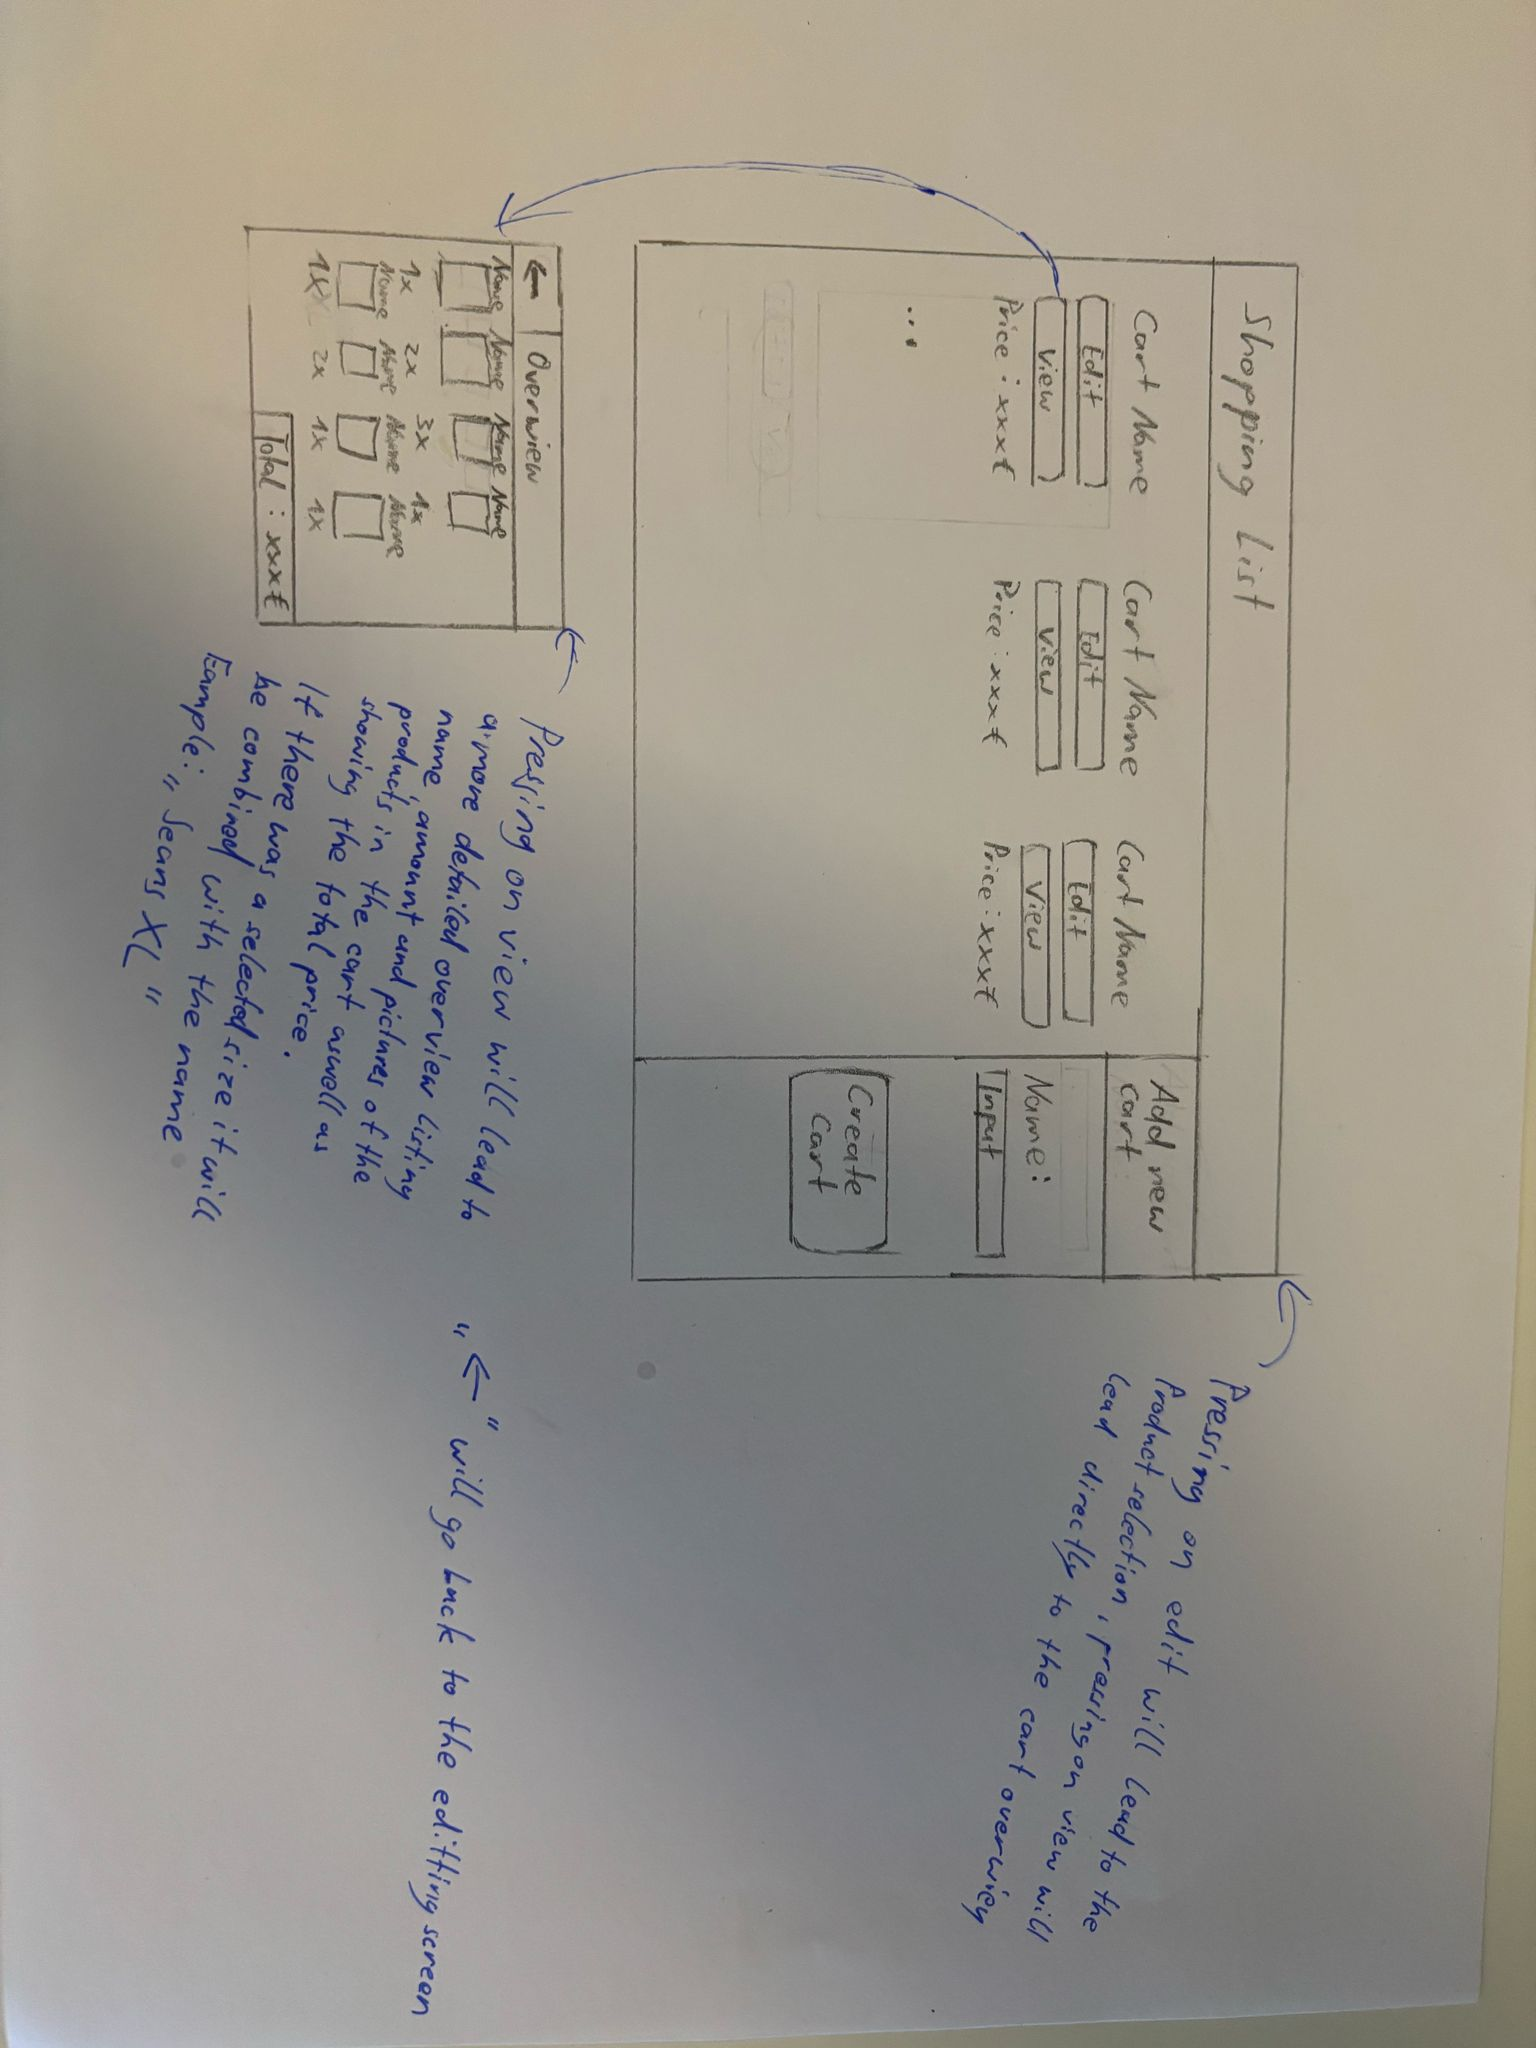 Shopping List
Cart Name
Cart Name
Cart Name
Edit
Edit
Edit
View
View
View
Price : xxx€
Price : xxx€
Price : xxx€
...
Add new
cart
Name :
Input
Create
Cart
Pressing on edit will lead to the
Product selection, pressing on view will
lead directly to the cart overwiey
← Overwiew
Name Name Name Name
1x 2x 3x 1x
Name Name Name Name
1x 2x 1x 1x
Total : xxx€
Pressing on view will lead to
a more detailed overview listing
name, amount and pictures of the
products in the cart aswell as
showing the total price.
If there was a selected size it will
be combined with the name
Eample: "Jeans XL"
"←" will go back to the editting screen